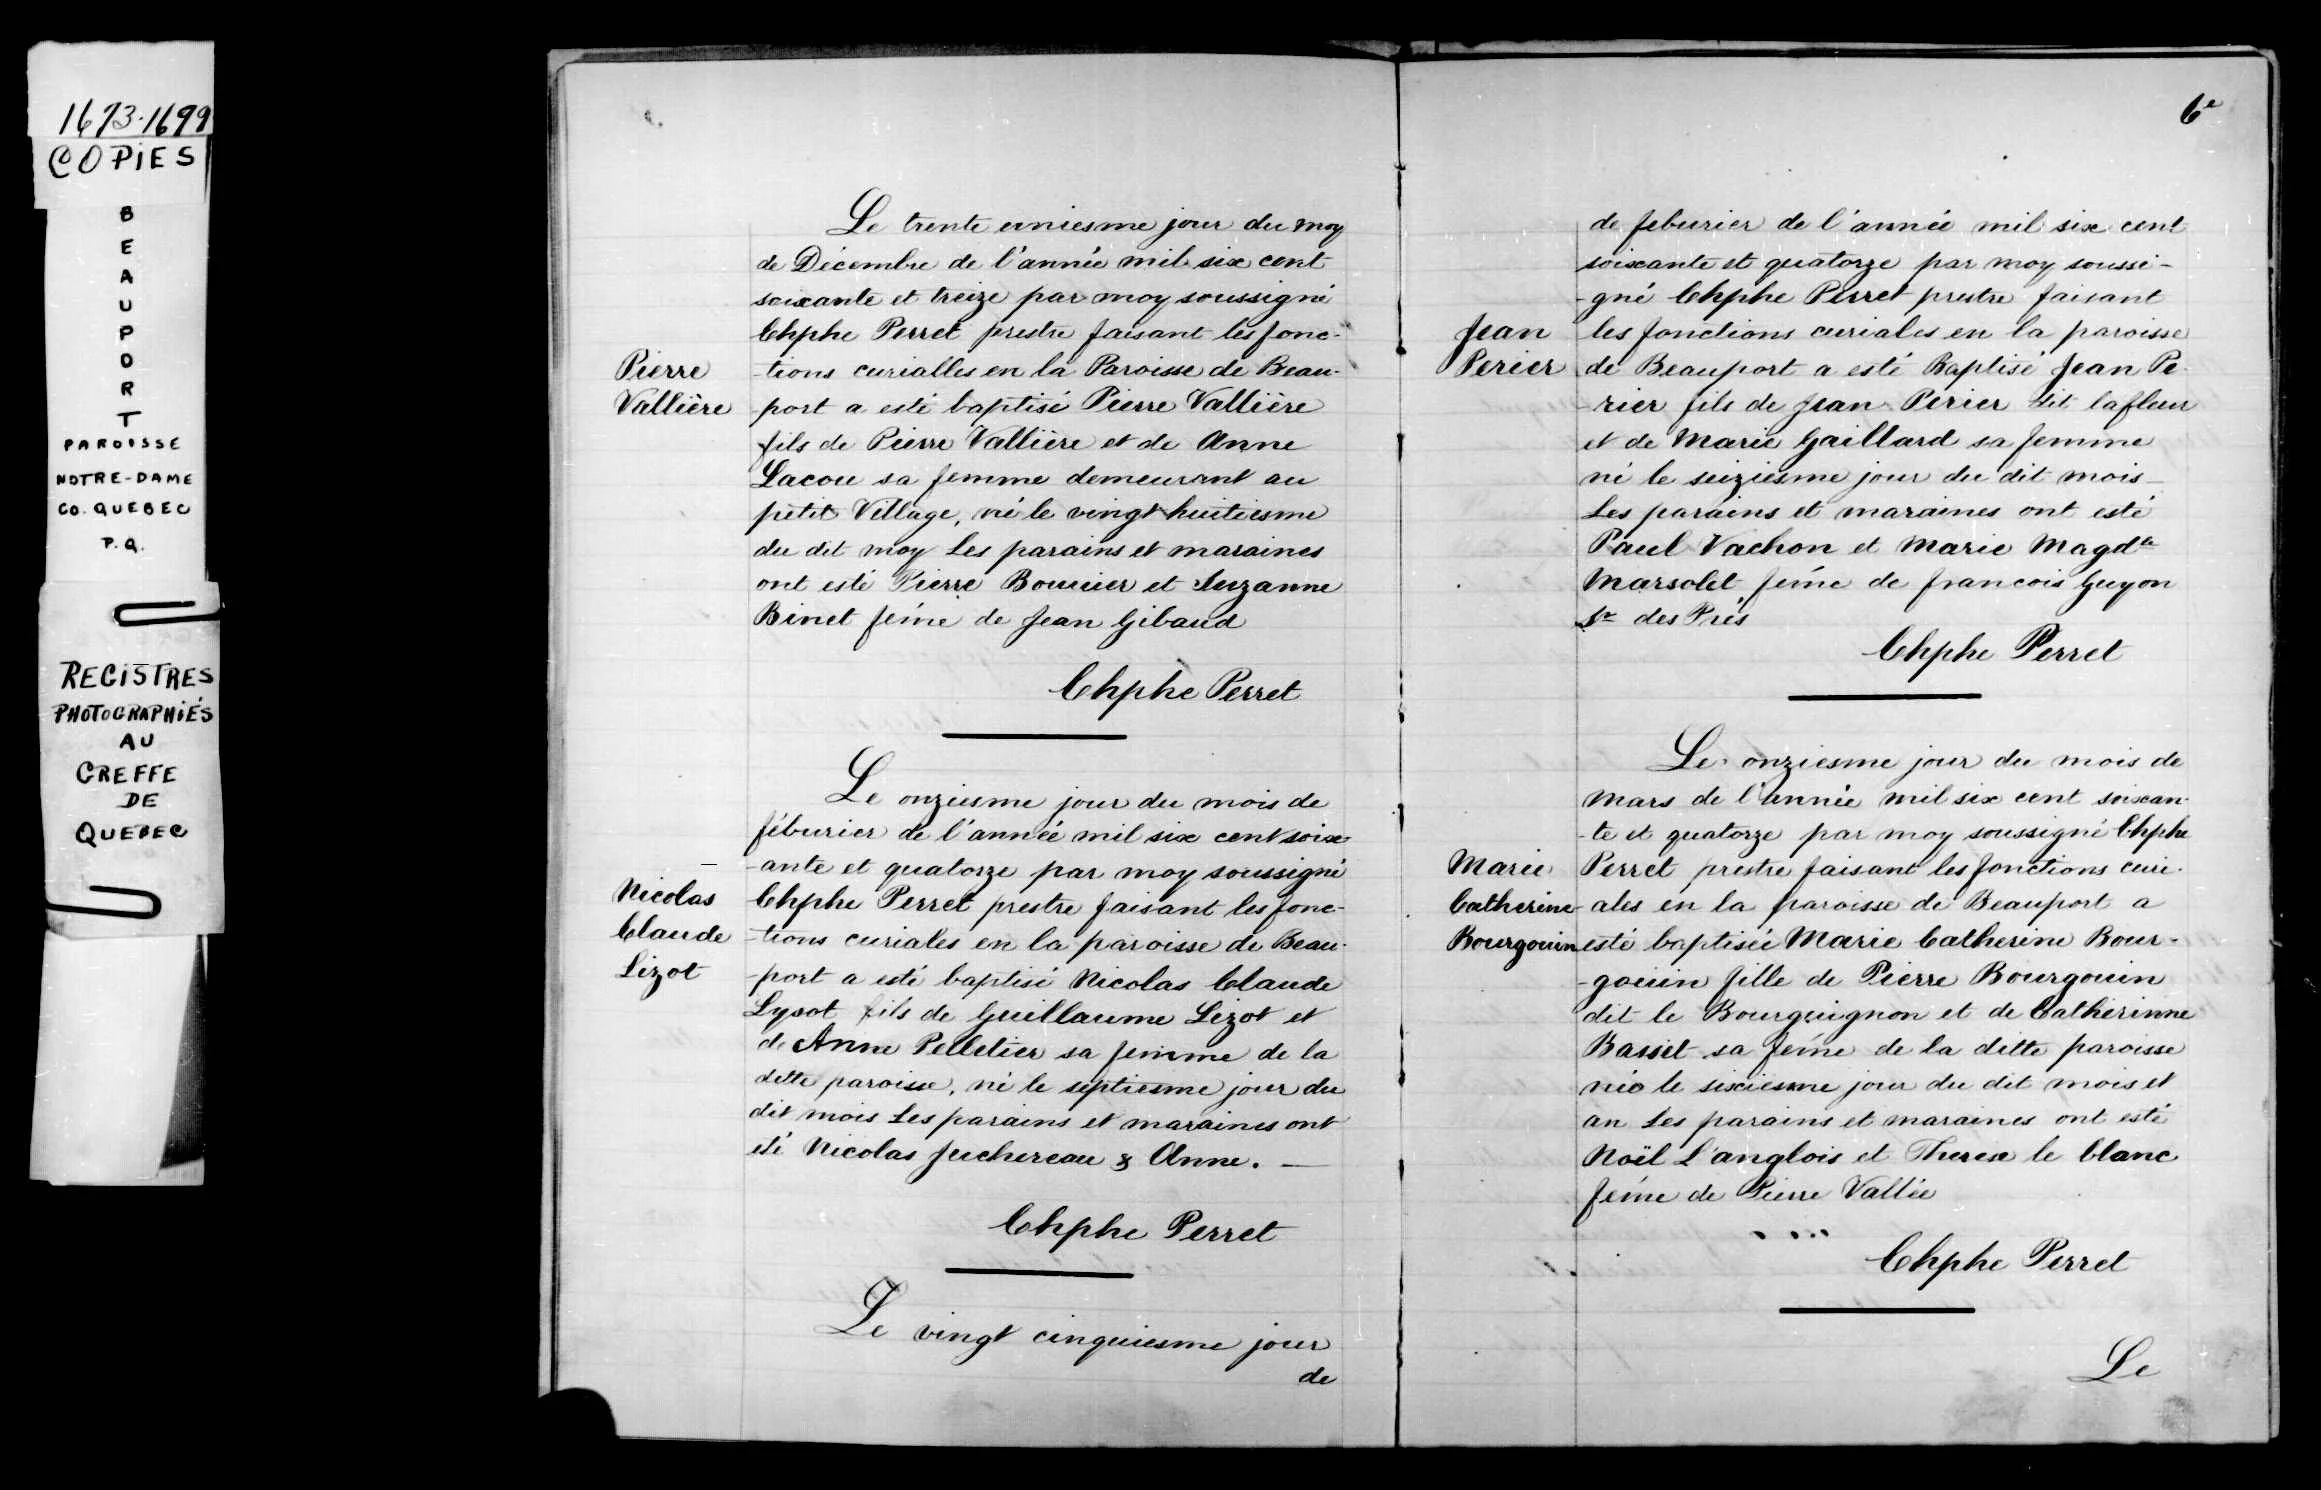 1673-1699
COPIES
B
E
A
U
P
O
R
T
PAROISSE
NOTRE-DAME
CO. QUEBEC
P.Q.
REGISTRES
PHOTOGRAPHIÉS
AU
GREFFE
DE
QUEBEC
Le trente uniesme jour du moy
de Décembre de l'année mil six cent
soixante et treize par moy soussigné
Chphe Perret prestre faisant les fonc-
Pierre
-tions curialles en la Paroisse de Beau-
Vallière
-port a esté baptisé Pierre Vallière
fils de Pierre Vallière et de Anne
Lacou sa femme demeurant au
petit Village, né le vingt huitiesme
du dit moy Les parains et maraines
ont esté Pierre Bouvier et Suzanne
Binet fem̃e de Jean Gibaud
Chphe Perret
Le onziesme jour du mois de
féburier de l'année mil six cent soix-
-ante et quatorze par moy soussigné
Nicolas
Chphe Perret prestre faisant les fonc-
Claude
-tions curiales en la paroisse de Beau-
Lizot
-port a esté baptisé Nicolas Claude
Lysot fils de Guillaume Lizot et
de Anne Pelletier sa femme de la
ditte paroisse, né le septiesme jour du
dit mois Les parains et maraines ont
été Nicolas Juchereau & Anne. —
Chphe Perret
Le vingt cinquiesme jour
de
6e
de feburier de l'année mil six cent
soixante et quatorze par moy soussi-
-gné Chphe Perret prestre faisant
Jean
les fonctions curiales en la paroisse
Perier
de Beauport a esté Baptisé Jean Pe-
-rier fils de Jean Perier dit lafleur
et de Marie Gaillard sa femme
né le seiziesme jour du dit mois —
Les parains et maraines ont esté
Paul Vachon et Marie Magdne
Marsolet, fem̃e de francois Guyon
Sr des Prés
Chphe Perret
Le onziesme jour du mois de
Mars de l'année mil six cent soixan-
-te et quatorze par moy soussigné Chphe
Marie
Perret prestre faisant les fonctions curi-
Catherine
ales en la paroisse de Beauport a
Bourgouin
esté baptisée Marie Catherine Bour-
-gouin fille de Pierre Bourgouin
dit le Bourguignon et de Catherinne
Basset sa fem̃e de la ditte paroisse
née le sixiesme jour du dit mois et
an Les parains et maraines ont esté
Noël L'anglois et Therese le blanc
fem̃e de Pierre Vallée
Chphe Perret
Le